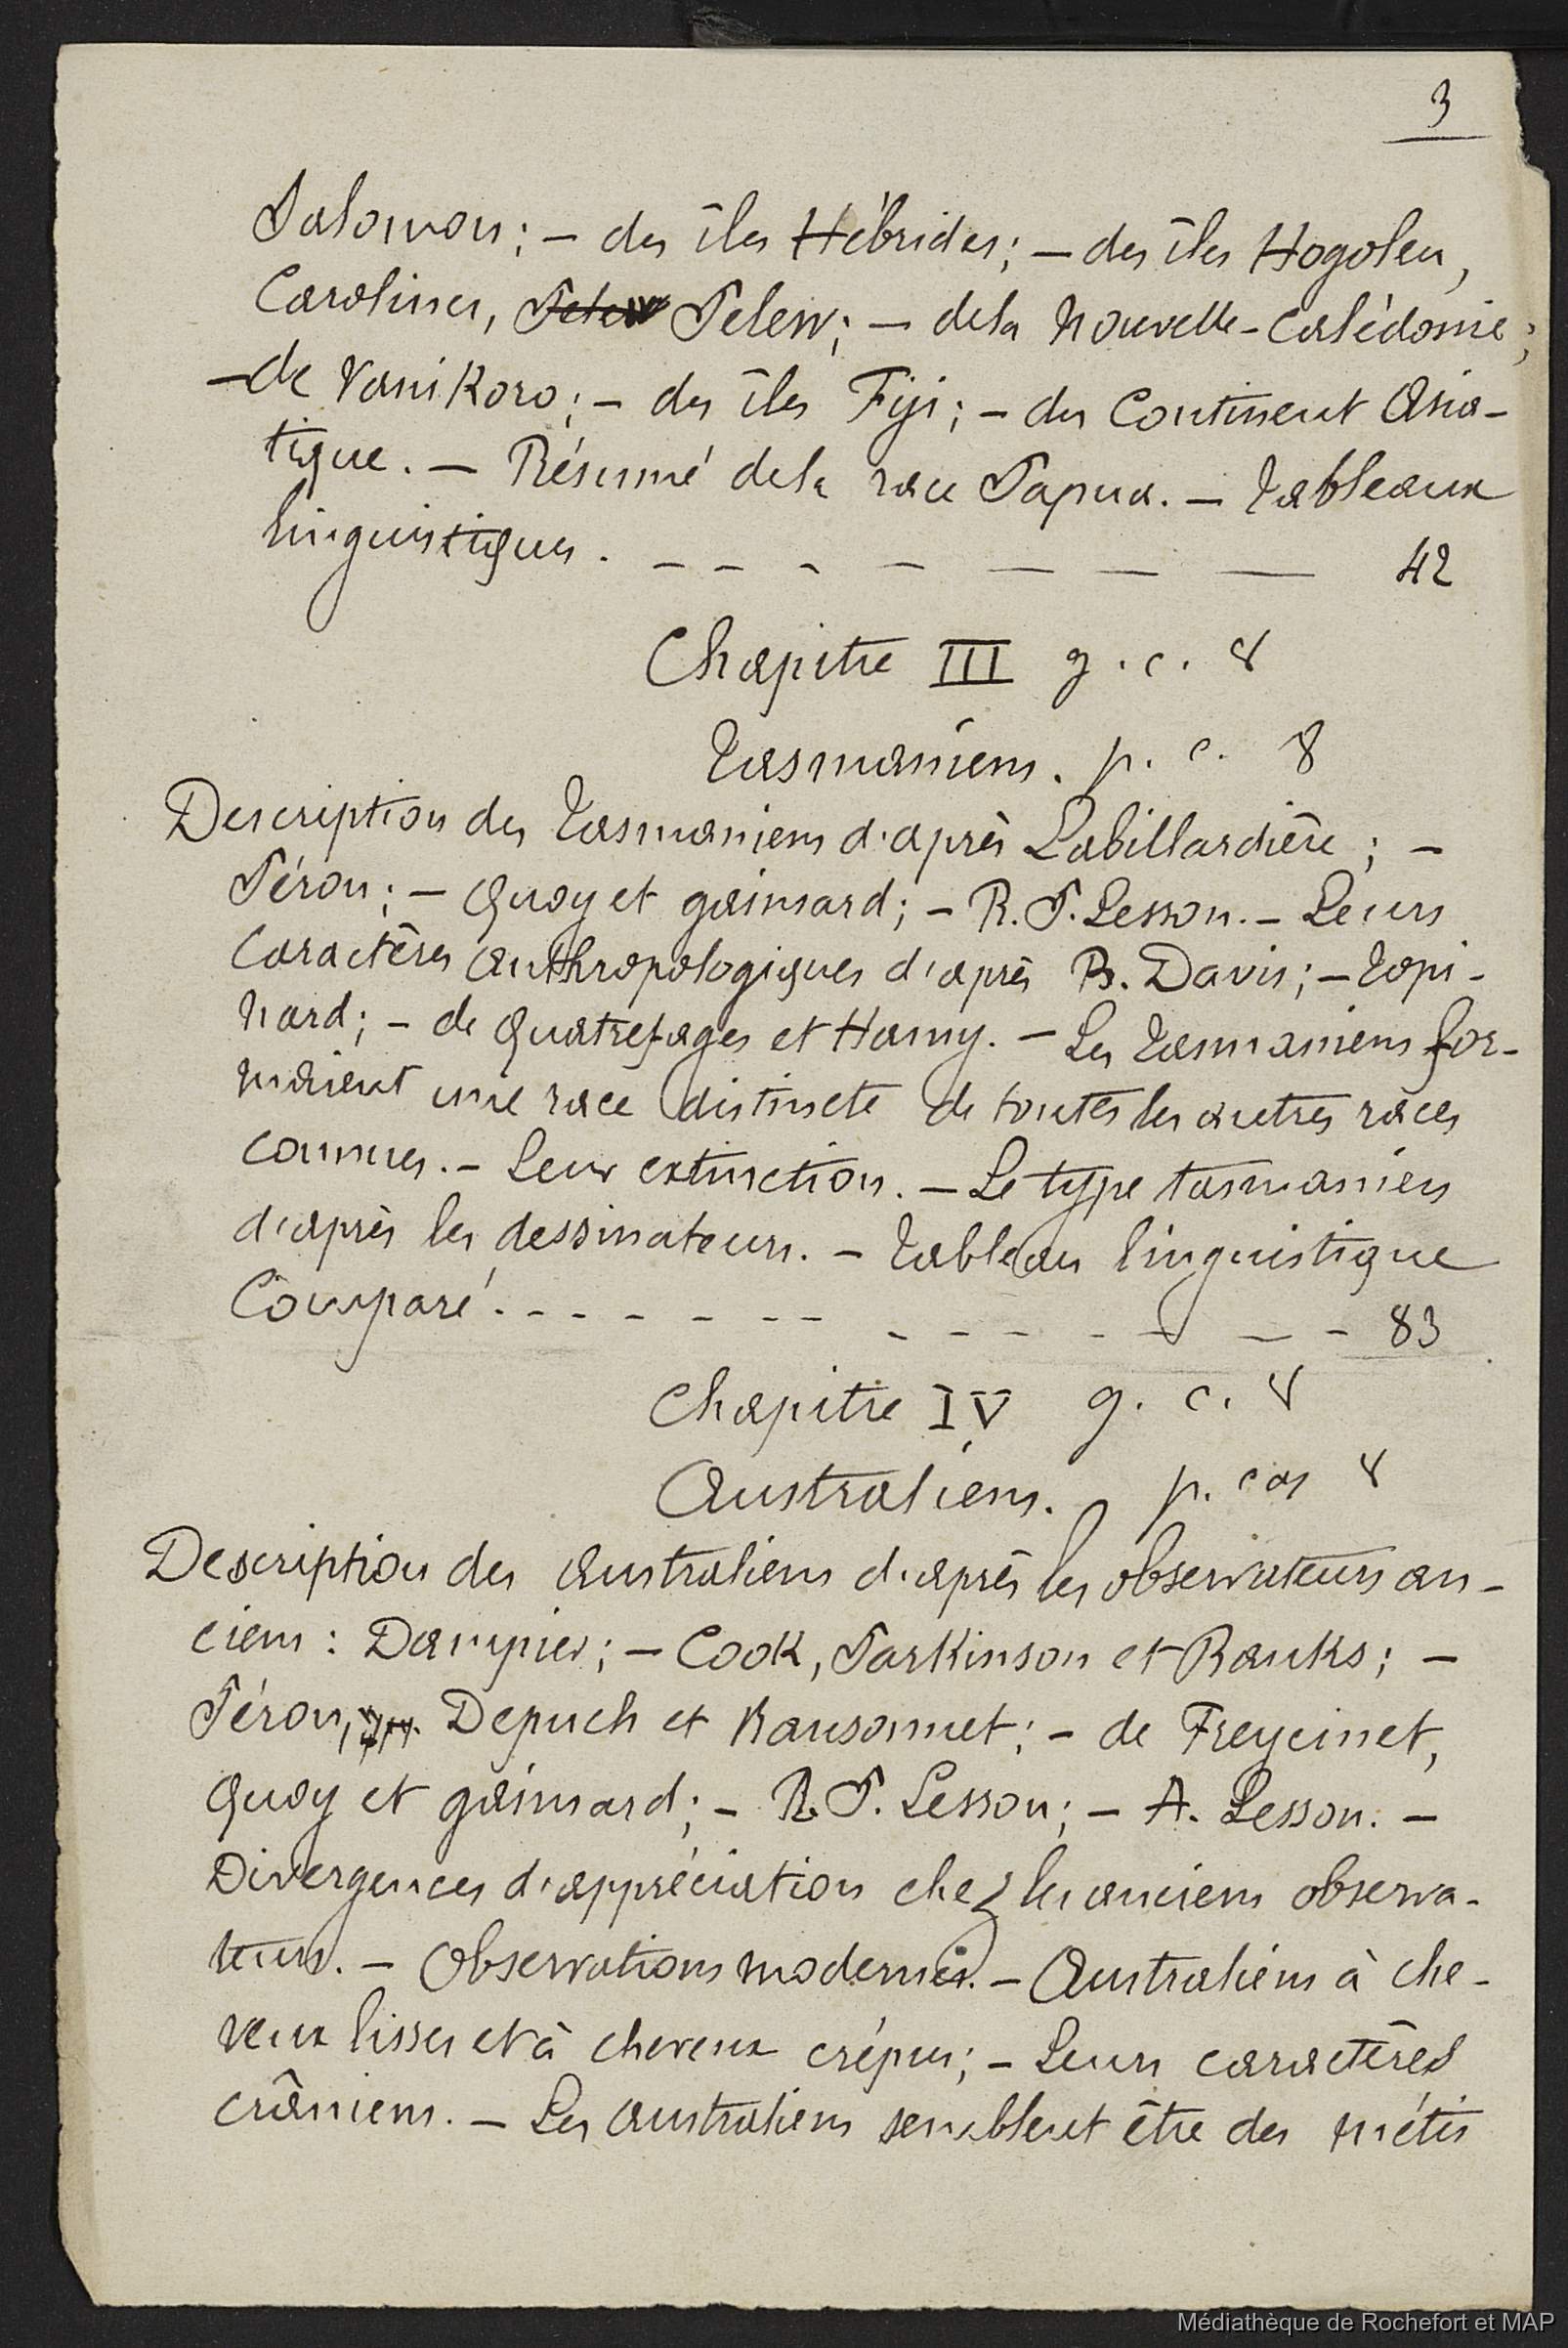 3
Salomon; – des îles Hébrides; – des îles Hogoleu,
Carolines, Pelew; – de la Nouvelle-Calédonie;
– de Vanikoro; – des îles Fiji; – du Continent Asia-
tique. – Résumé de la race Papua. – Tableaux
linguistiques. – – – – – – – 42
Chapitre III g. c. 8
Tasmaniens. p. c. 8
Description des Tasmaniens d'après Labillardière; –
Péron; – Quoy et gaimard; – R. P. Lesson. – Leurs
Caractères Anthropologiques d'après B. Davis; – Topi-
nard; – de Quatrefages et Hamy. – Les Tasmaniens for-
maient une race distincte de toutes les autres races
connues. – Leur extinction. – Le type tasmanien
d'après les dessinateurs. – Tableau linguistique
Comparé. – – – – – – – – – – – – – 83
Chapitre IV g. c. 8
Australiens. p. cas 8
Description des Australiens d'après les observateurs an-
ciens : Dampier; – Cook, Parkinson et Banks; –
Péron, Depuch et Ransonnet; – de Freycinet,
Quoy et gaimard; – R. P. Lesson; – A. Lesson. –
Divergences d'appréciation chez les anciens observa-
teurs. – Observations modernes. – Australiens à che-
veux lisses et à cheveux crépus; – Leurs caractères
crâniens. – Les Australiens semblent être des métis
Médiathèque de Rochefort et MAP